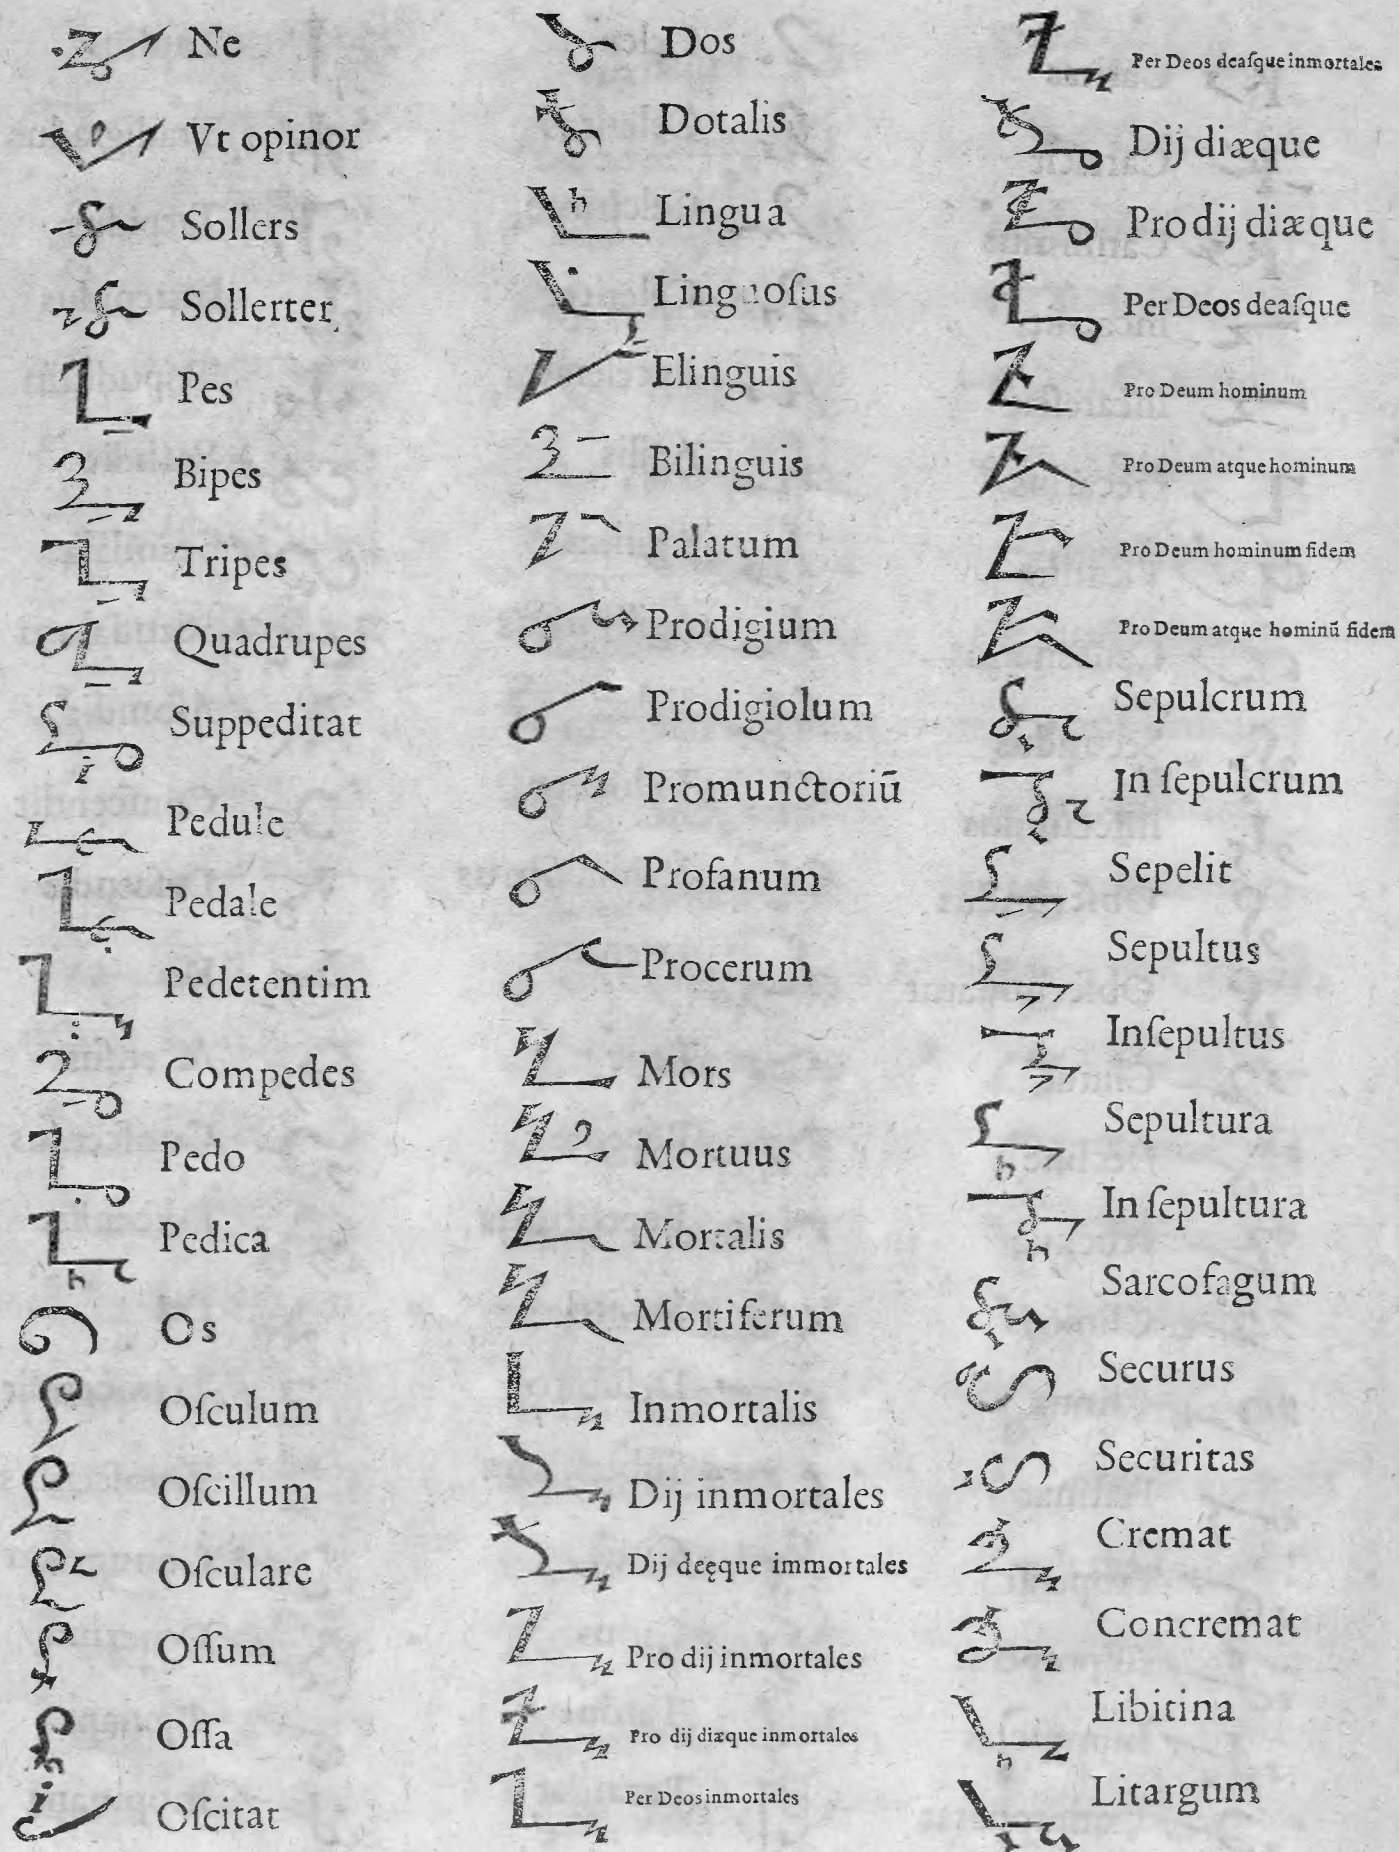 Ne
Vt opinor
Sollers
Sollerter
Pes
Bipes
Tripes
Quadrupes
Suppeditat
Pedule
Pedale
Pedetentim
Compedes
Pedo
Pedica
Os
Oſculum
Oſcillum
Oſculare
Oſſum
Oſſa
Oſcitat
Dos
Dotalis
Lingua
Linguoſus
Elinguis
Bilinguis
Palatum
Prodigium
Prodigiolum
Promunctoriū
Profanum
Procerum
Mors
Mortuus
Mortalis
Mortiferum
Inmortalis
Dij inmortales
Dij deęque immortales
Pro dij inmortales
Pro dij diæque inmortales
Per Deos inmortales
Per Deos deaſque inmortales
Dij diæque
Pro dij diæque
Per Deos deaſque
Pro Deum hominum
Pro Deum atque hominum
Pro Deum hominum fidem
Pro Deum atque hominū fidem
Sepulcrum
In ſepulcrum
Sepelit
Sepultus
Inſepultus
Sepultura
In ſepultura
Sarcofagum
Securus
Securitas
Cremat
Concremat
Libitina
Litargum